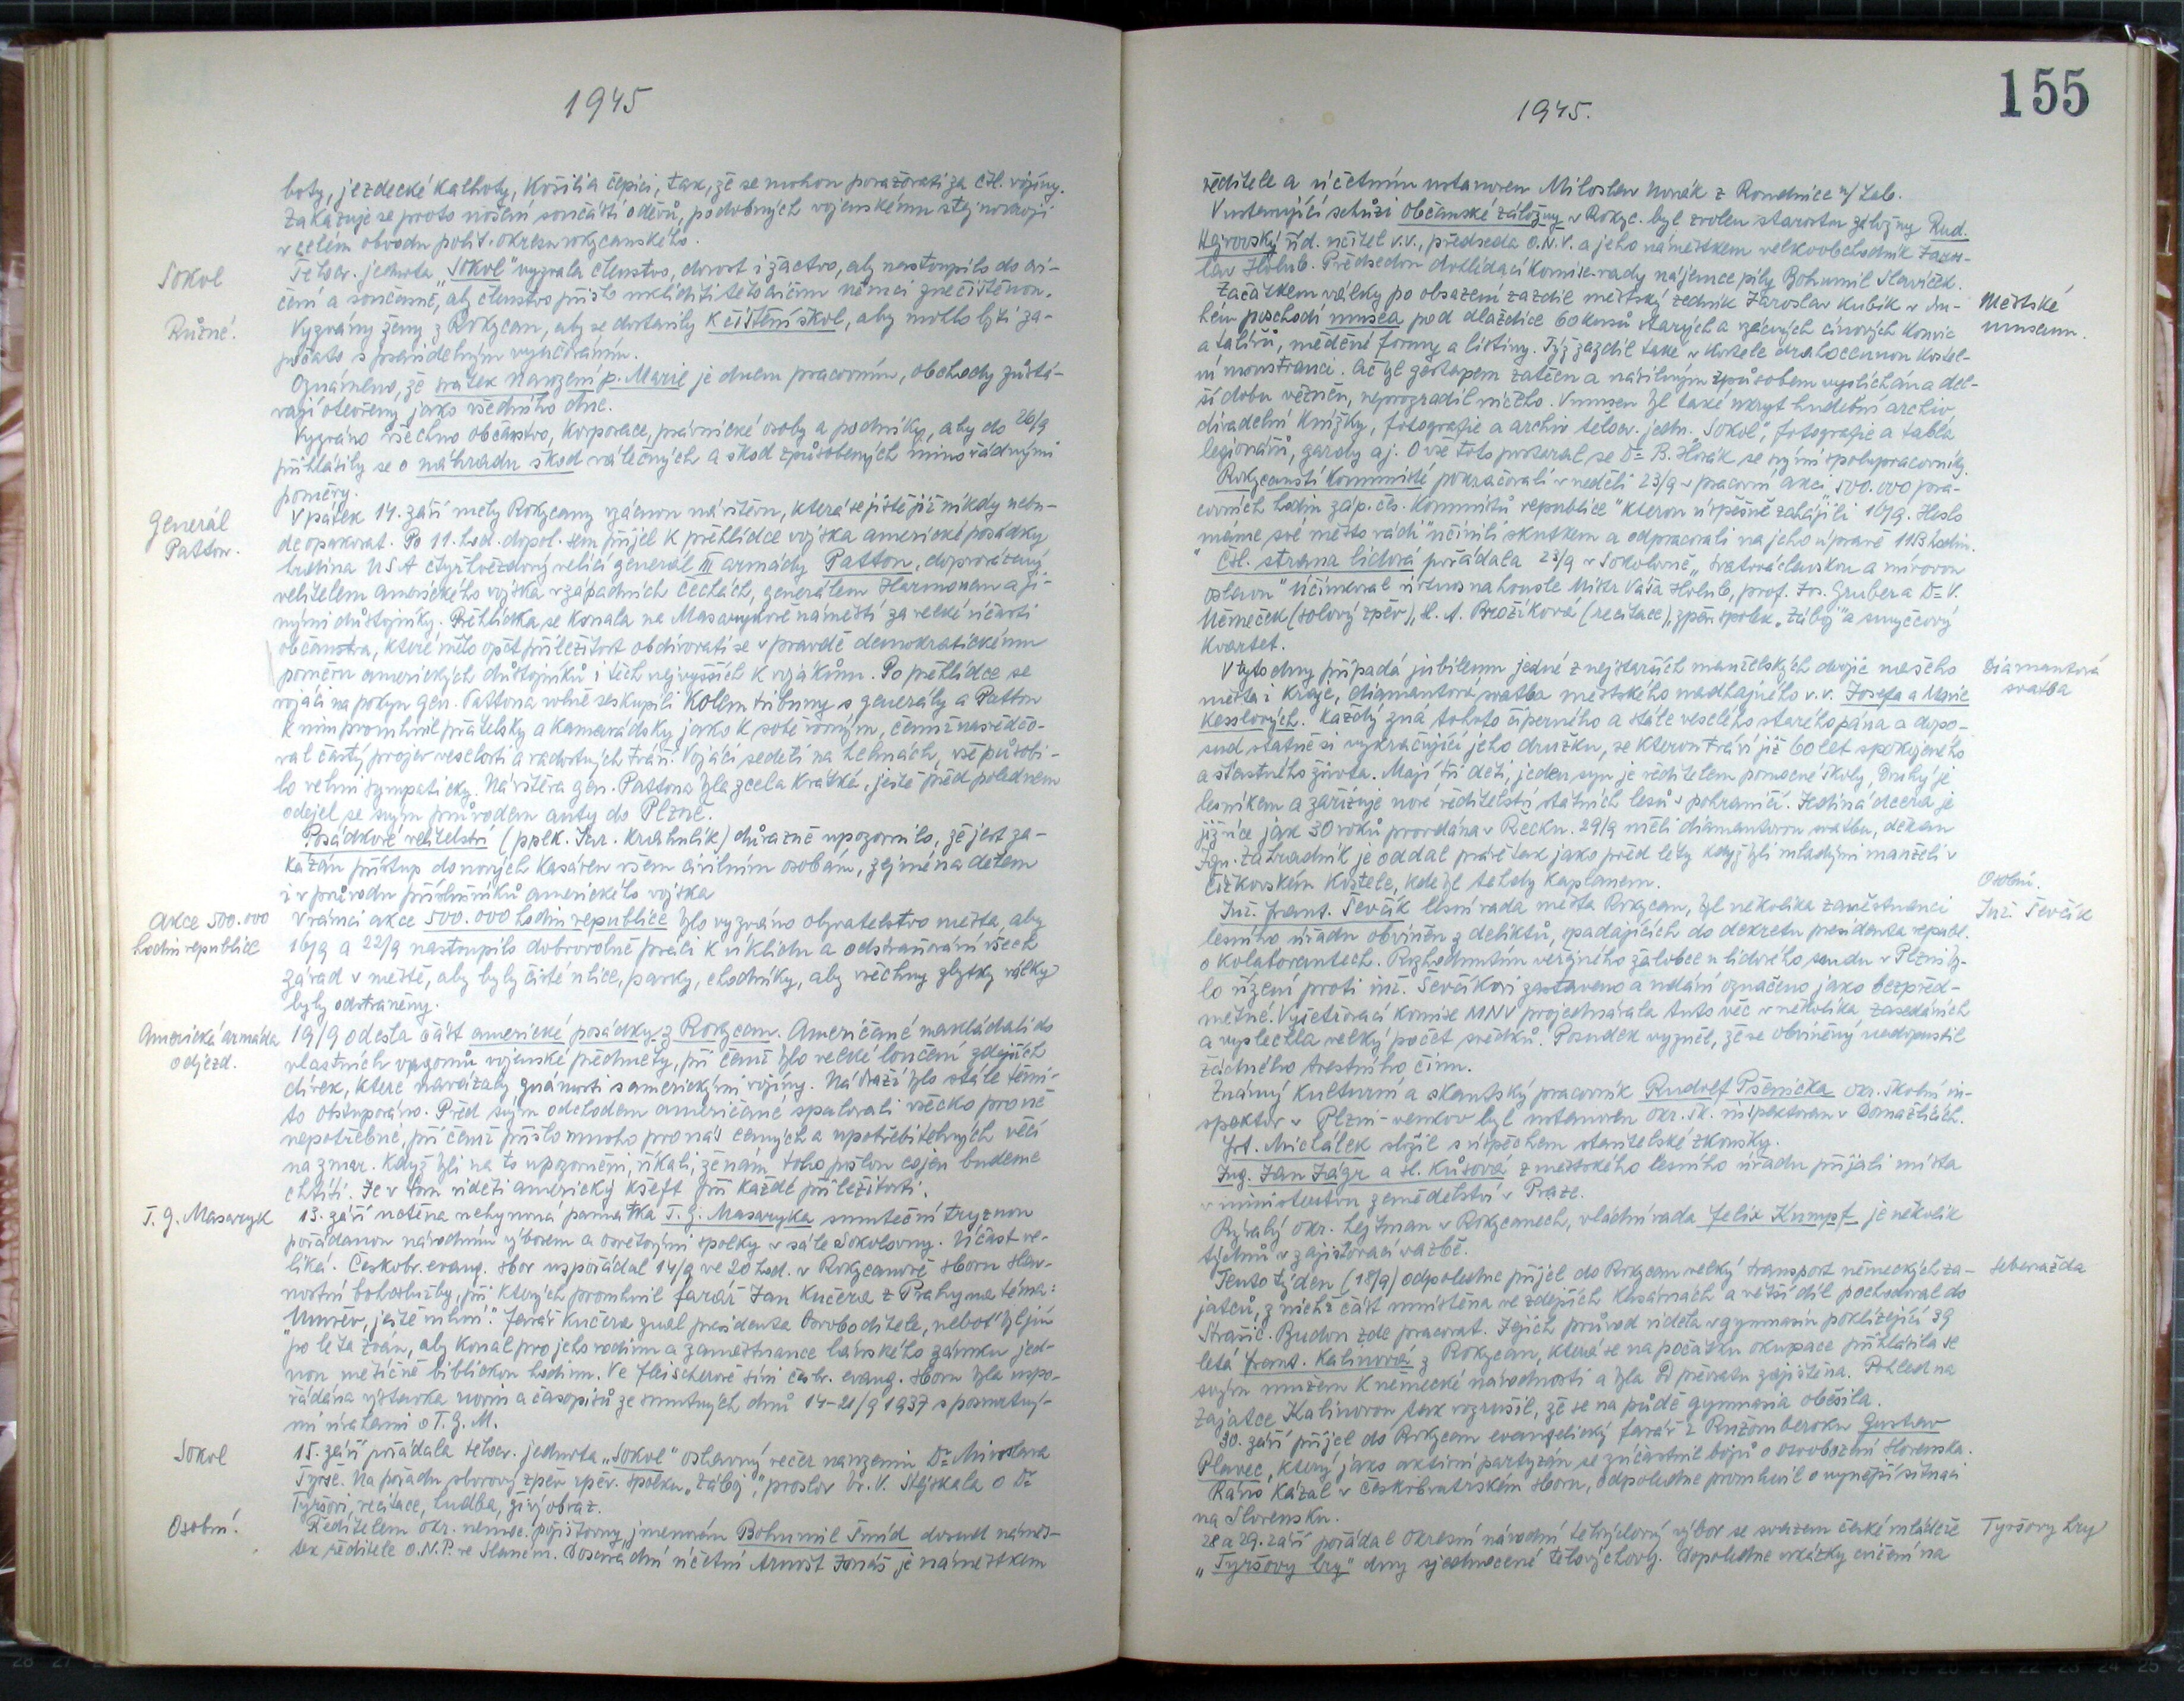 1945
boty, jezdecké kalhoty, košili a čepici, tak, že se mohou považovati za čsl. vojíny.
Zakazuje se proto nošení součástí oděvů, podobných vojenskému stejnokroji
v celém obvodu polit. okresu rokycanského.
Sokol
Tělocv. jednota „Sokol" vyzvala členstvo, dorost i žactvo, aby nastoupilo do cvi-
čení a současně, aby členstvo přišlo uklíditi tělocvičnu němci znečištěnou.
Různé.
Vyzvány ženy z Rokycan, aby se dostavily k čištění škol, aby mohlo býti za-
počato s pravidelným vyučováním.
Oznámeno, že svátek Narození p. Marie je dnem pracovním, obchody zůstá-
vají otevřeny jako všedního dne.
Vyzváno všechno občanstvo, korporace, právnické osoby a podniky, aby do 26/9
přihlásily se o náhradu škod válečných a škod způsobených mimořádnými
poměry.
Generál
Patton.
V pátek 14. září měly Rokycany vzácnou návštěvu, která se jistě již nikdy nebu-
de opakovat. Po 11. hod. dopol. sem přijel k přehlídce vojska americké posádky
hrdina USA čtyřhvězdový velící generál III armády Patton, doprovázený
velitelem amerického vojska v západních Čechách, generálem Harmonem a ji-
nými důstojníky. Přehlídka se konala na Masarykově náměstí za velké účasti
občanstva, které mělo opět příležitost obdivovati se v pravdě demokratickému
poměru amerických důstojníků i těch nejvyšších k vojákům. Po přehlídce se
vojáci na pokyn gen. Pattona volně seskupili kolem tribuny s generály a Patton
k nim promluvil přátelsky a kamarádsky jako k sobě rovným, čemuž nasvědčo-
val častý projev veselosti a radostných tváří. Vojáci seděli na helmách, vše působi-
lo velmi sympaticky. Návštěva gen. Pattona byla zcela krátká, ještě před polednem
odejel se svým průvodem auty do Plzně.
Posádkové velitelství (pplk. Jar. Krahulík) důrazně upozornilo, že jest za-
kázán přístup do nových kasáren všem civilním osobám, zejména dětem
i v průvodu příslušníků amerického vojska
Akce 500.000
hodin republice
V rámci akce 500.000 hodin republice bylo vyzváno obyvatelstvo města, aby
16/9 a 22/9 nastoupilo dobrovolně práci k úklidu a odstraňování všech
závad v městě, aby byly čisté ulice, parky, chodníky, aby všechny zbytky války
byly odstraněny.
Americká armáda
odjezd.
19/9 odešla část americké posádky z Rokycan. Američané nakládali do
vlastních vagonů vojenské předměty, při čemž bylo velké loučení zdejších
dívek, které navázaly známosti s americkými vojíny. Nádraží bylo stále těmi-
to obstupováno. Před svým odchodem američané spalovali všecko pro ně
nepotřebné, při čemž přišlo mnoho pro nás cenných a upotřebitelných věcí
na zmar. Když byli na to upozorněni, říkali, že nám toho pošlou co jen budeme
chtíti. Je v tom viděti americký kšeft při každé příležitosti.
T. G. Masaryk
13. září uctěna nehynoucí památka T. G. Masaryka smuteční tryznou
pořádanou národním výborem a osvětovými spolky v sále Sokolovny. Účast ve-
liká. Českobr. evang. sbor uspořádal 14/9 ve 20 hod. v Rokycanově sboru slav-
nostní bohoslužby, při kterých promluvil farář Jan Kučera z Prahy na téma:
„Umřev, ještě mluví." Farář Kučera znal presidenta Osvoboditele, neboť byl jím
po léta zván, aby konal pro jeho rodinu a zaměstnance lánského zámku jed-
nou měsíčně biblickou hodinu. Ve Fleischerově síni čsbr. evang. sboru byla uspo-
řádána výstavka novin a časopisů ze smutných dnů 14-21/9 1937 s posmrtný-
mi úvahami o T. G. M.
Sokol
15. září pořádala tělocv. jednota „Sokol" oslavný večer narozenin Dr Miroslava
Tyrše. Na pořadu sborový zpěv zpěv. spolku „Záboj", proslov br. V. Stejskala o Dr
Tyršovi, recitace, hudba, živý obraz.
Osobní.
Ředitelem okr. nemoc. pojišťovny jmenován Bohumil Šmíd dosud náměs-
tek ředitele O.N.P. ve Slaném. Dosavadní účetní Arnošt Jonáš je náměstkem
155
1945.
ředitele a účetním ustanoven Miloslav Novák z Roudnice n/ Lab.
V ustavující schůzi Občanské záložny v Rokyc. byl zvolen starostou záložny Rud.
Hejrovský říd. učitel v.v., předseda O.N.V. a jeho náměstkem velkoobchodník Jaro-
slav Holub. Předsedou dohlídací komise-rady nájemce pily Bohumil Slavíček.
Městské
museum.
Začátkem války po obsazení zazdil městský zedník Jaroslav Kubík v dru-
hém poschodí musea pod dlaždice 60 kusů starých a vzácných cínových konvic
a talířů, měděné formy a listiny. Týž zazdil také v kostele drahocennou kostel-
ní monstranci. Ač byl gestapem zatčen a násilným způsobem vyslíchán a del-
ší dobu vězněn, neprozradil ničeho. V museu byl také ukryt hudební archiv,
divadelní knížky, fotografie a archiv tělocv. jedn. „Sokol", fotografie a tabla
legionářů, gardy a j. O vše toto postaral se Dr B. Horák se svými spolupracovníky.
Rokycanští komunisté pokračovali v neděli 23/9 v pracovní akci „500.000 pra-
covních hodin záp. čes. komunistů republice" kterou úspěšně zahájili 16/9. Heslo
„máme své město rádi" učinili skutkem a odpracovali na jeho úpravě 1113 hodin.
Čsl. strana lidová pořádala 23/9 v Sokolovně „Svatováclavskou a mírovou
oslavu" Účinkoval virtuos na housle Mistr Váša Holub, prof. Jos. Gruber a Dr V.
Němeček (sólový zpěv), sl. A. Brožíková (recitace), zpěv. spolek „Záboj" a smyčcový
kvartet.
Diamantová
svatba
V tyto dny připadá jubileum jedné z nejstarších manželských dvojic našeho
města i kraje, diamantová svatba městského nadhajného v.v. Josefa a Marie
Kesslových. Každý zná tohoto čiperného a stále veselého starého pána a dopo-
sud statně si vykračující jeho družku, se kterou tráví již 60 let spokojeného
a šťastného života. Mají tři děti, jeden syn je ředitelem pomocné školy, druhý je
lesníkem a zařizuje nové ředitelství státních lesů v pohraničí. Jediná dcera je
již více jak 30 roků provdána v Řecku. 29/9 měli diamantovou svatbu, děkan
Ign. Zahradník je oddal právě tak jako před lety když byli mladými manželi v
Čižkovském kostele, kde byl tehdy kaplanem.
Osobní.
Inž. Ševčík
Inž. Frant. Ševčík lesní rada města Rokycan, byl několika zaměstnanci
lesního úřadu obviněn z deliktů, spadajících do dekretu presidenta republ.
o kolaborantech. Rozhodnutím veřejného žalobce u lidového soudu v Plzni by-
lo řízení proti inž. Ševčíkovi zastaveno a udání označeno jako bezpřed-
mětné. Vyšetřovací komise MNV projednávala tuto věc v několika zasedáních
a vyslechla velký počet svědků. Posudek vyzněl, že se obviněný nedopustil
žádného trestního činu.
Známý kulturní a skautský pracovník Rudolf Pšenička okr. školní in-
spektor v Plzni-venkov byl ustanoven okr. šk. inspektorem v Domažlicích.
Jos. Michálek složil s úspěchem stavitelské zkoušky.
Ing. Jan Jágr a sl. Kůsová z městského lesního úřadu přijali místa
v ministerstvu zemědělství v Praze.
Bývalý okr. hejtman v Rokycanech, vládní rada Felix Kumpf je několik
týdnů v zajišťovací vazbě.
Sebevražda
Tento týden (18/9) odpoledne přijel do Rokycan velký transport německých za-
jatců, z nichž část umístěna ve zdejších kasárnách a větší díl pochodoval do
Strašic. Budou zde pracovat. Jejich průvod viděla v gymnasiu poklízející 39
letá Frant. Kalinová z Rokycan, která se na počátku okupace přihlásila se
svým mužem k německé národnosti a byla po převratu zajištěna. Pohled na
zajatce Kalinovou tak rozrušil, že se na půdě gymnasia oběsila.
30. září přijel do Rokycan evangelický farář z Ružomberoku Gustav
Plavec, který jako aktivní partyzán se zúčastnil bojů o osvobození Slovenska.
Ráno kázal v českobratrském sboru, odpoledne promluvil o nynější situaci
na Slovensku.
Tyršovy hry
28 a 29. září pořádal Okresní národní tělovýchovný výbor se svazem české mládeže
„Tyršovy hry" dny sjednocené tělovýchovy. Dopoledne ukázky cvičení na